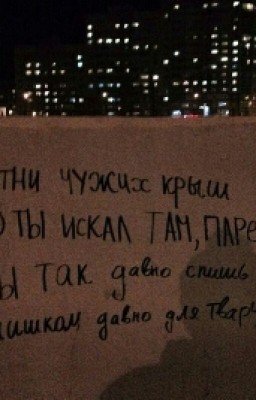 ТНИ ЧУЖИХ КРЫШ
О ТЫ ИСКАЛ ТАМ, ПАРЕ
Ы ТАК давно спишь
лишком давно для Твар